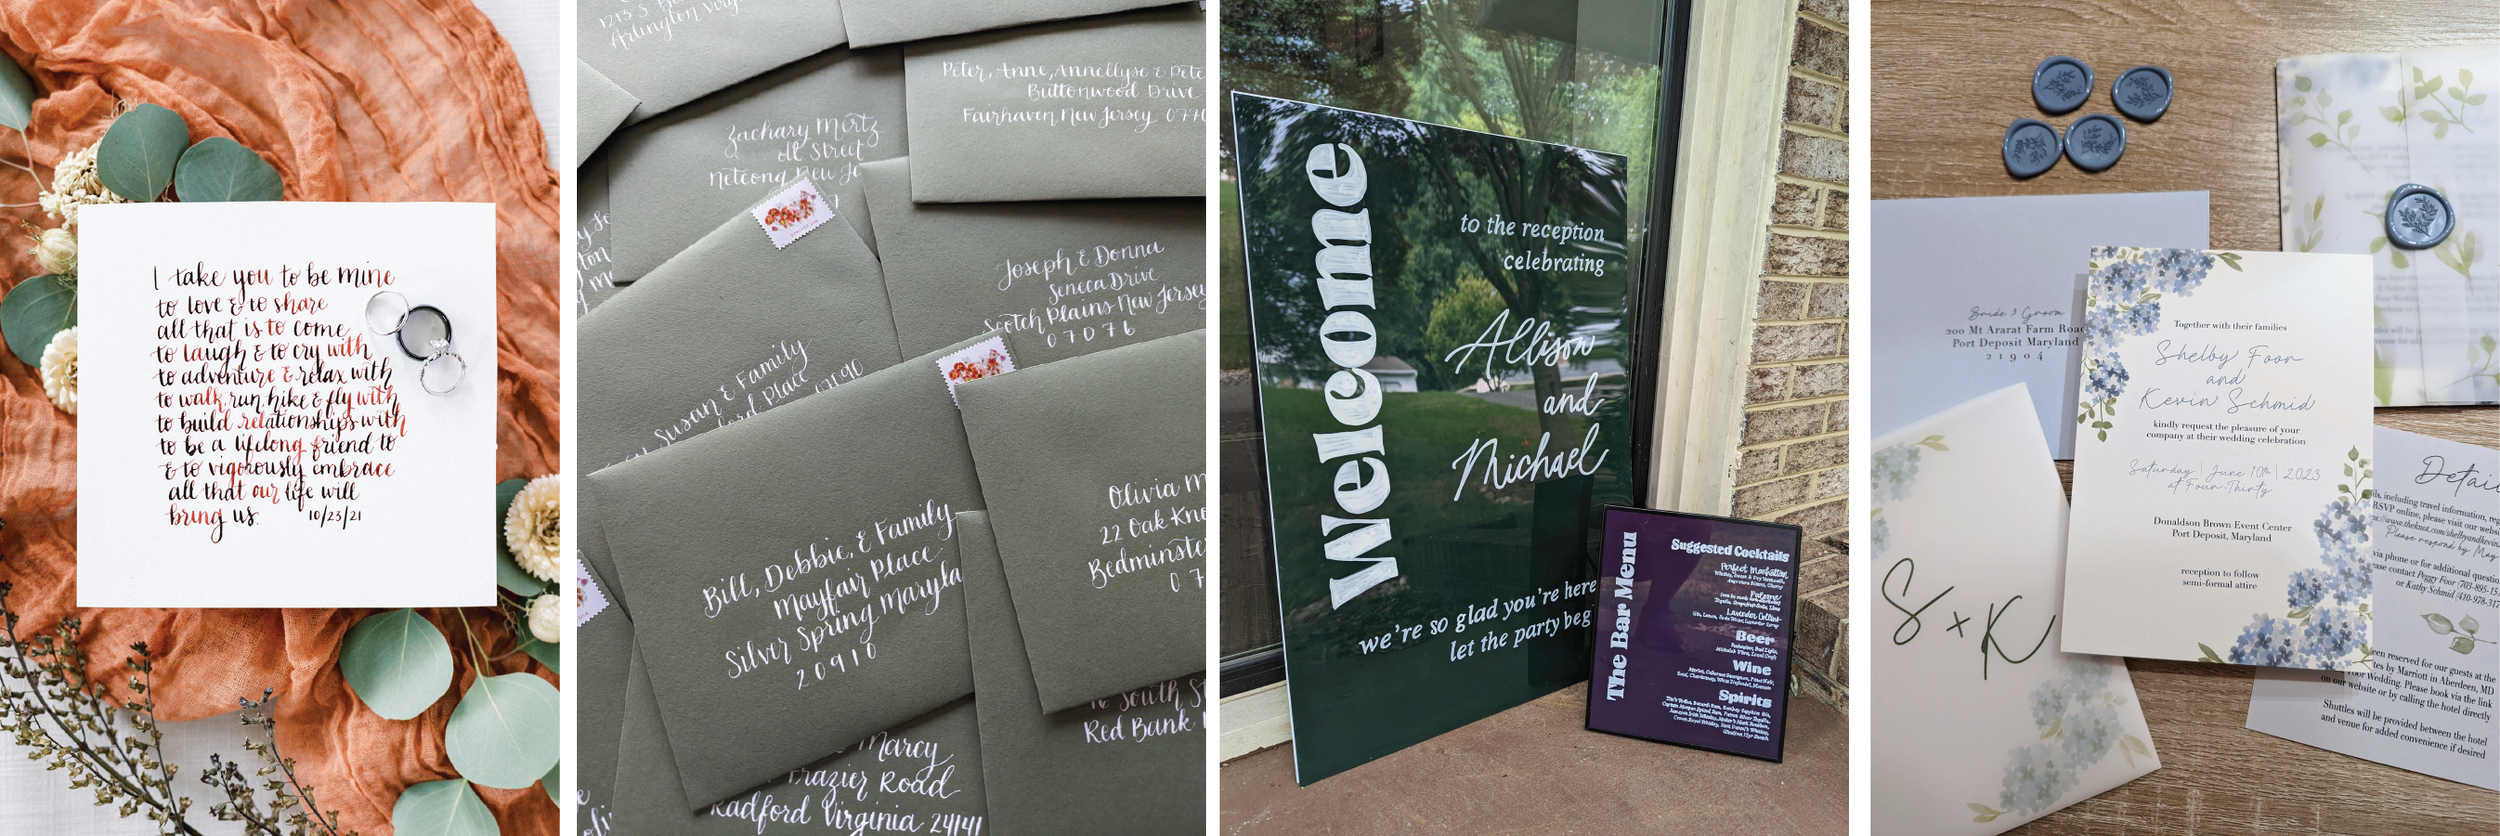 I take you to be mine
to love & to share
all that is to come
to laugh & to cry with
to adventure & relax with
to walk, run, hike & fly with
to build relationships with
to be a lifelong friend to
& to vigorously embrace
all that our life will
bring us. 10/23/21
Arlington
Peter, Anne, Annellyse & Pete
Buttonwood Drive
Fairhaven New Jersey
Zachary Mertz
Street
Netcong New
Joseph & Donna
Seneca Drive
Scotch Plains New Jersey
07076
Susan & Family
Place
Bill, Debbie, & Family
Mayfair Place
Silver Spring Maryla
20910
Olivia M
22 Oak Kno
Bedminste
07
Marcy
Frazier Road
Radford Virginia 24141
16 South St
Red Bank
Welcome
to the reception
celebrating
Allison
and
Michael
we're so glad you're here
let the party beg
The Bar Menu
Suggested Cocktails
Perfect Manhattan
Paloma
Lavender Collins
Beer
Wine
Spirits
Bride & Groom
200 Mt Ararat Farm Road
Port Deposit Maryland
21904
S x K
Together with their families
Shelby Foor
and
Kevin Schmid
kindly request the pleasure of your
company at their wedding celebration
Saturday | June 10th | 2023
at Four-Thirty
Donaldson Brown Event Center
Port Deposit, Maryland
reception to follow
semi-formal attire
Detai
including travel information,
RSVP online, please visit our
Please respond by May
via phone or for additional
contact Peggy Foor
or Kathy Schmid
been reserved for our guests at the
by Marriott in Aberdeen, MD
Wedding. Please book via the link
on our website or by calling the hotel directly
Shuttles will be provided between the hotel
and venue for added convenience if desired